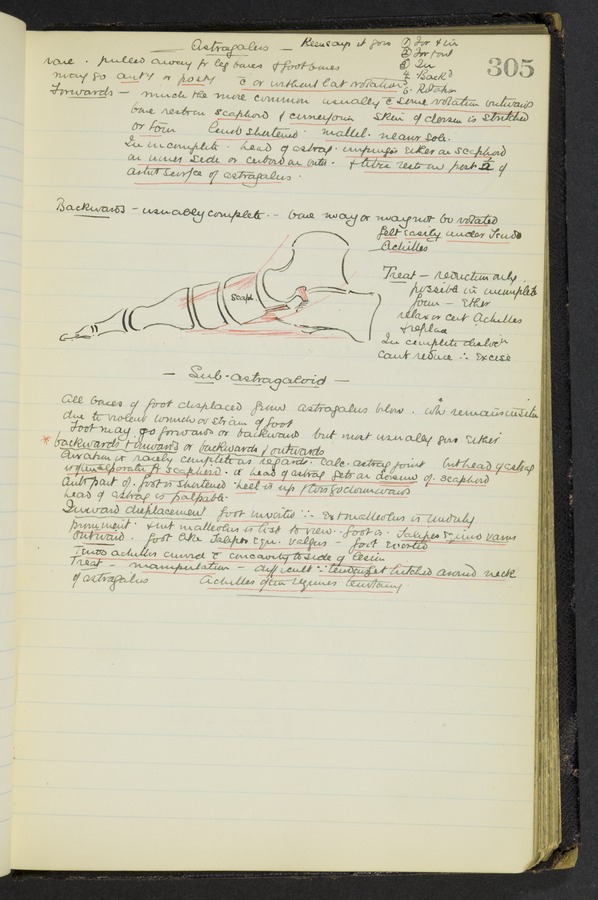 305
Astragalus — Rose says it goes ① For + in
② For + out
③ In
4. Back^d
5. Rotation
rare. pulled away fr leg bones & foot bones
may go ant^y or post^y c̄ or without lat rotation
Forwards — much the more common usually c̄ some rotation outwards
bone rests on scaphoid / cuneiform skin of dorsum is stretched
or torn limb shortened mallel. nearer sole.
In incomplete. head of astrag. impinges either on scaphoid
on inner side or cuboid on outer. & tibia rests on post ½ of
artic surface of astragalus.
Backwards — usually complete. — bone may or may not be rotated
felt easily under Tendo
Achilles
Scaph.
Treat — reduction only
possible in incomplete
form — Ether
relax or cut Achilles
& replace
In complete disloc^n
can't reduce ∴ Excise
— Sub-astragaloid —
All bones of foot displaced from astragalus below. wh remains in situ
due to violent wrench or strain of foot
Foot may go forwards or backwards but most usually goes either
* backwards & inwards or backwards / outwards
is rarely complete as regards calc-astrag joint but head of astrag
is scaphoid. & head of astrag gets on dorsum of scaphoid
Ant part of foot is shortened heel is up / toes go downwards
head of astrag is palpable.
Inward displacement foot inverted ∴ Ext malleolus is unduly
prominent & int malleolus is lost to view. foot is Talipes Equino varus
Outward. foot like Talipes Equ. valgus — foot everted
Tendo achilles curved c̄ concavity to side of lesion
Treat — manipulation — difficult ∵ tendons get hitched around neck
of astragalus Achilles often requires tenotomy